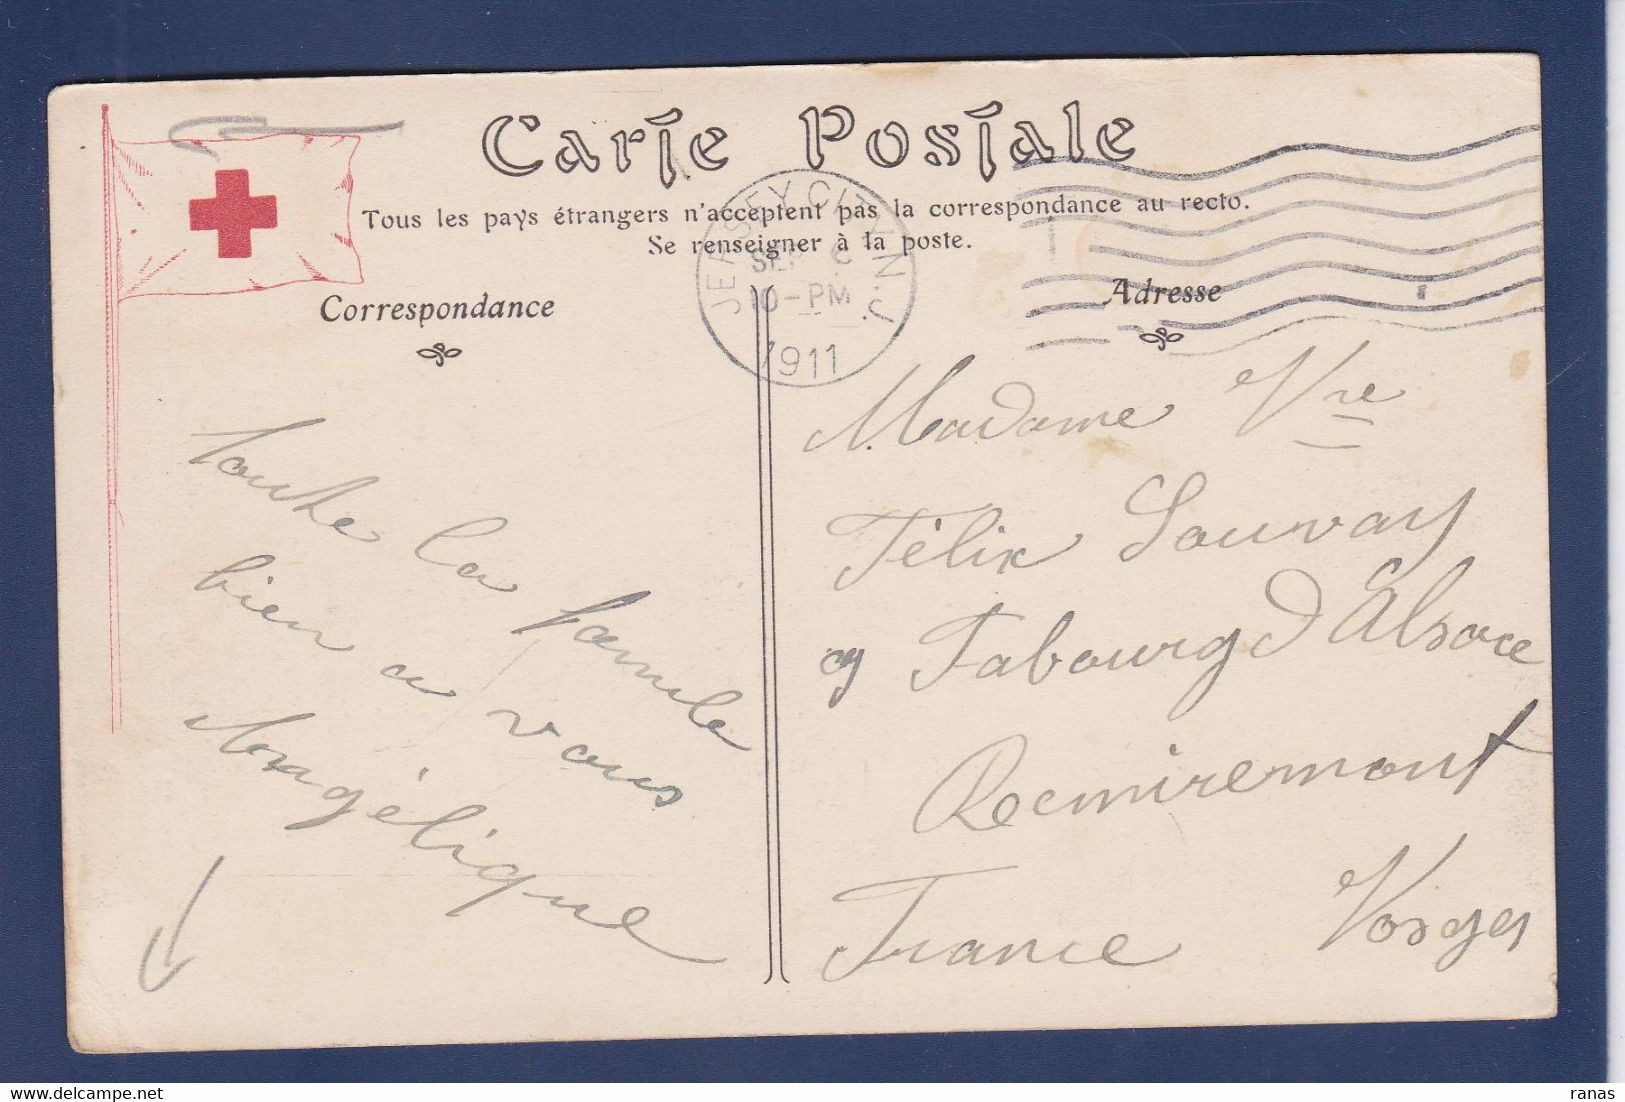 Carte Postale
Tous les pays étrangers n'acceptent pas la correspondance au recto.
Se renseigner à la poste.
JERSEY CITY, N.J.
SEP
10-PM
1911
Correspondance
Adresse
Toute la famille
bien a vous
Angélique
Madame Vve
Félix Louvay
Fabourg d'Alsace
Remiremont
France Vosges
ranas